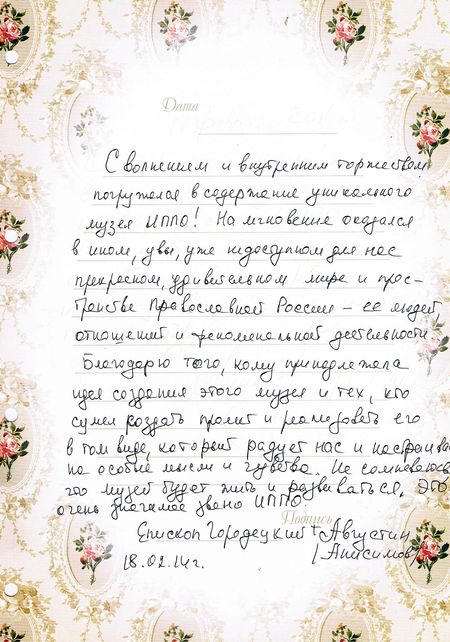 Дата
С волнением и внутренним торжеством
погружался в содержание уникального
музея ИППО! На мгновение оказался
в ином, увы, уже недоступном для нас
прекрасном, удивительном мире и прос-
транстве Православной России – ее людей,
отношений и феноменальной деятельности
Благодарю того, кому принадлежала
идея создания этого музея и тех, кто
сумел создать проект и реализовать его
в том виде, который радует нас и настраивае
на особые мысли и чувства. Не сомневаюсь
что музей будет жить и развиваться. Это
очень значимое звено ИППО.
Подпись
Епископ Городецкий + Августин
(Анисимов)
18.02.14г.